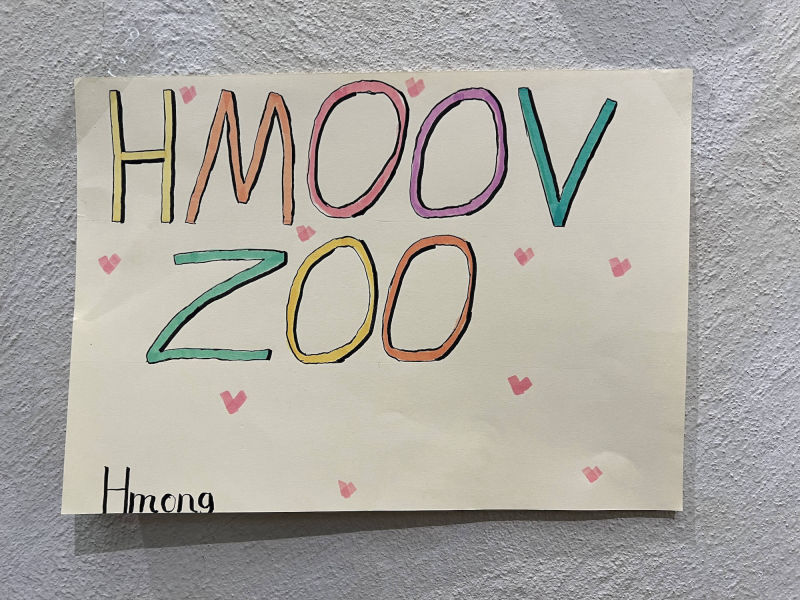 HMOOV
ZOO
Hmong